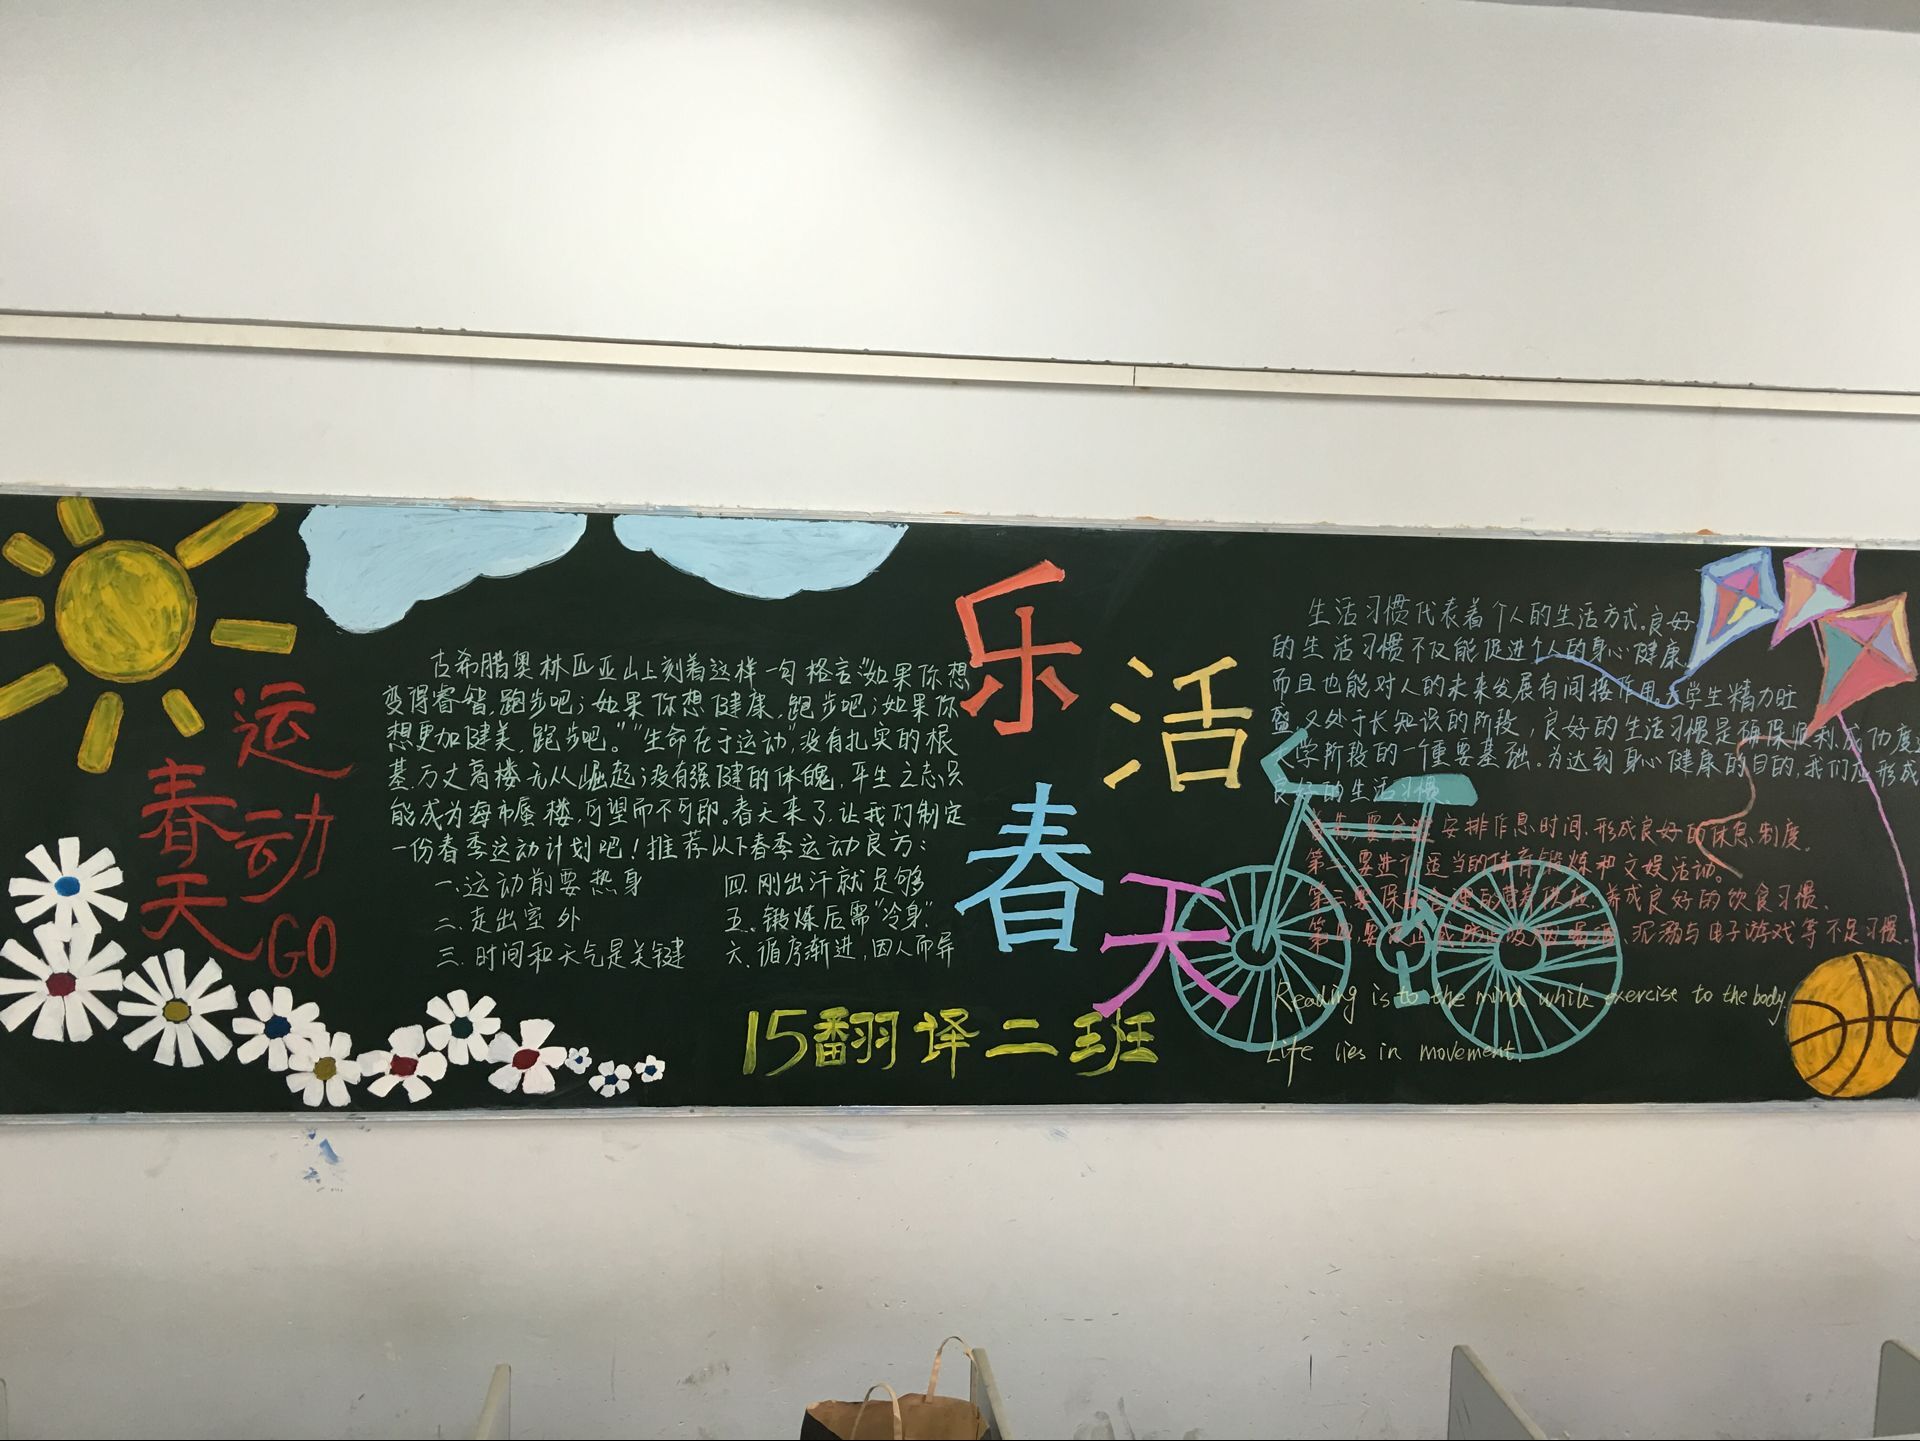 运动
春天
GO
古希腊奥林匹亚山上刻着这样一句格言“如果你想
变得睿智,跑步吧;如果你想健康,跑步吧;如果你
想更加健美,跑步吧。”“生命在于运动”,没有扎实的根
基,万丈高楼无从崛起;没有强健的体魄,平生之志只
能成为海市蜃楼,可望而不可即。春天来了,让我们制定
一份春季运动计划吧!推荐以下春季运动良方:
一.运动前要热身
二.走出室外
三.时间和天气是关键
四.刚出汗就足够
五.锻炼后需“冷身”
六.循序渐进,因人而异
乐活
春天
15翻译二班
生活习惯代表着个人的生活方式。良好
的生活习惯不仅能促进个人的身心健康,
而且也能对人的未来发展有间接作用。大学生精力旺
盛,又处于长知识的阶段,良好的生活习惯是确保顺利,成功度过
大学阶段的一个重要基础。为达到身心健康的目的,我们应形成
良好的生活习惯。
首先,要合理安排作息时间,形成良好的休息制度。
第二,要进行适当的体育锻炼和文娱活动。
第三,要保证合理的营养供应,养成良好的饮食习惯。
第四,要改正或防止吸烟、酗酒、沉溺与电子游戏等不足习惯。
Reading is to the mind while exercise to the body.
Life lies in movement.